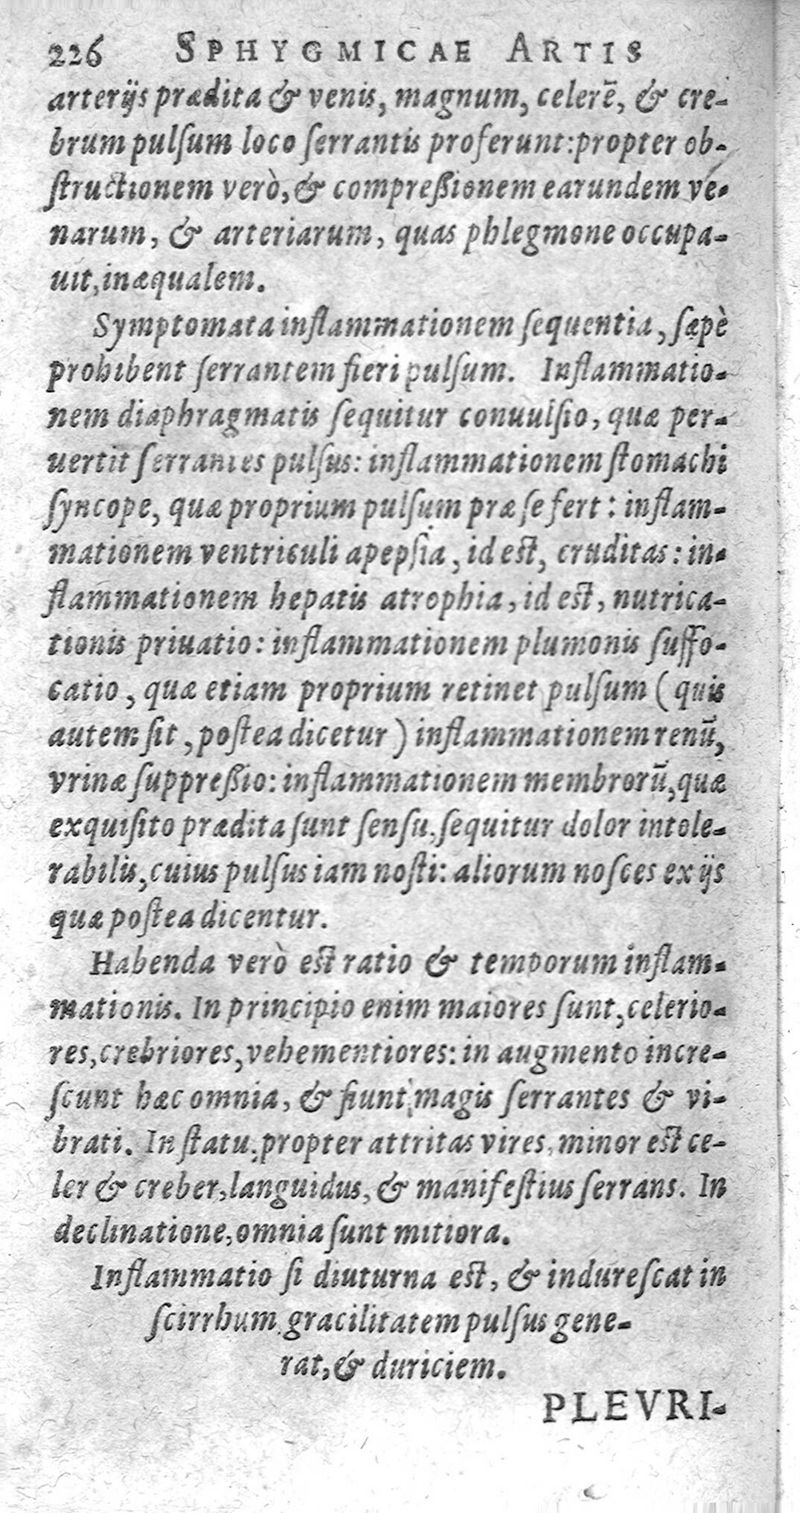 226 SPHYGMICAE ARTIS
arterijs prædita & venis, magnum, celerē, & cre-
brum pulſum loco ſerrantis proferunt: propter ob-
ſtructionem verò, & compreßionem earundem ve-
narum, & arteriarum, quas phlegmone occupa-
uit, inæqualem.
Symptomata inflammationem ſequentia, ſæpè
prohibent ſerrantem fieri pulſum. Inflammatio-
nem diaphragmatis ſequitur conuulſio, quæ per-
uertit ſerrantes pulſus: inflammationem ſtomachi
ſyncope, quæ proprium pulſum præ ſe fert: inflam-
mationem ventriculi apepſia, id eſt, cruditas: in-
flammationem hepatis atrophia, id eſt, nutrica-
tionis priuatio: inflammationem plumonis ſuffo-
catio, quæ etiam proprium retinet pulſum (quis
autem ſit, poſtea dicetur) inflammationem renū,
vrinæ ſuppreßio: inflammationem membrorū, quæ
exquiſito prædita ſunt ſenſu, ſequitur dolor intole-
rabilis, cuius pulſus iam noſti: aliorum noſces ex ijs
quæ poſtea dicentur.
Habenda verò eſt ratio & temporum inflam-
mationis. In principio enim maiores ſunt, celerio-
res, crebriores, vehementiores: in augmento incre-
ſcunt hæc omnia, & fiunt magis ſerrantes & vi-
brati. In ſtatu, propter attritas vires, minor eſt ce-
ler & creber, languidus, & manifeſtius ſerrans. In
declinatione, omnia ſunt mitiora.
Inflammatio ſi diuturna eſt, & indureſcat in
ſcirrhum gracilitatem pulſus gene-
rat, & duriciem.
PLEVRI-